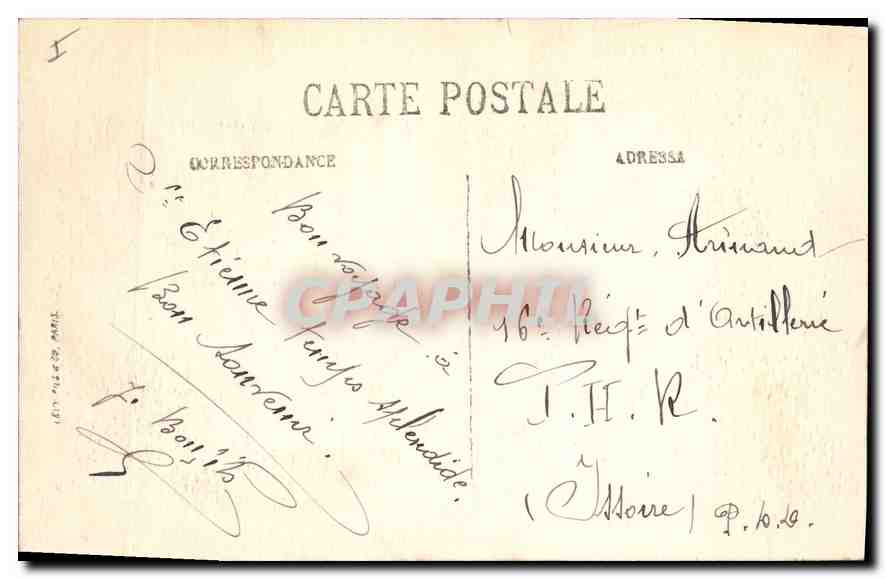 I
CARTE POSTALE
CORRESPONDANCE
ADRESSE
Bon voyage à
St Etienne temps splendide.
Bon souvenir.
J.
Monsieur Armand
16e Régt d'Artillerie
P. H. R.
(Issoire) P. de D.
CPAPHIL
PARIS.